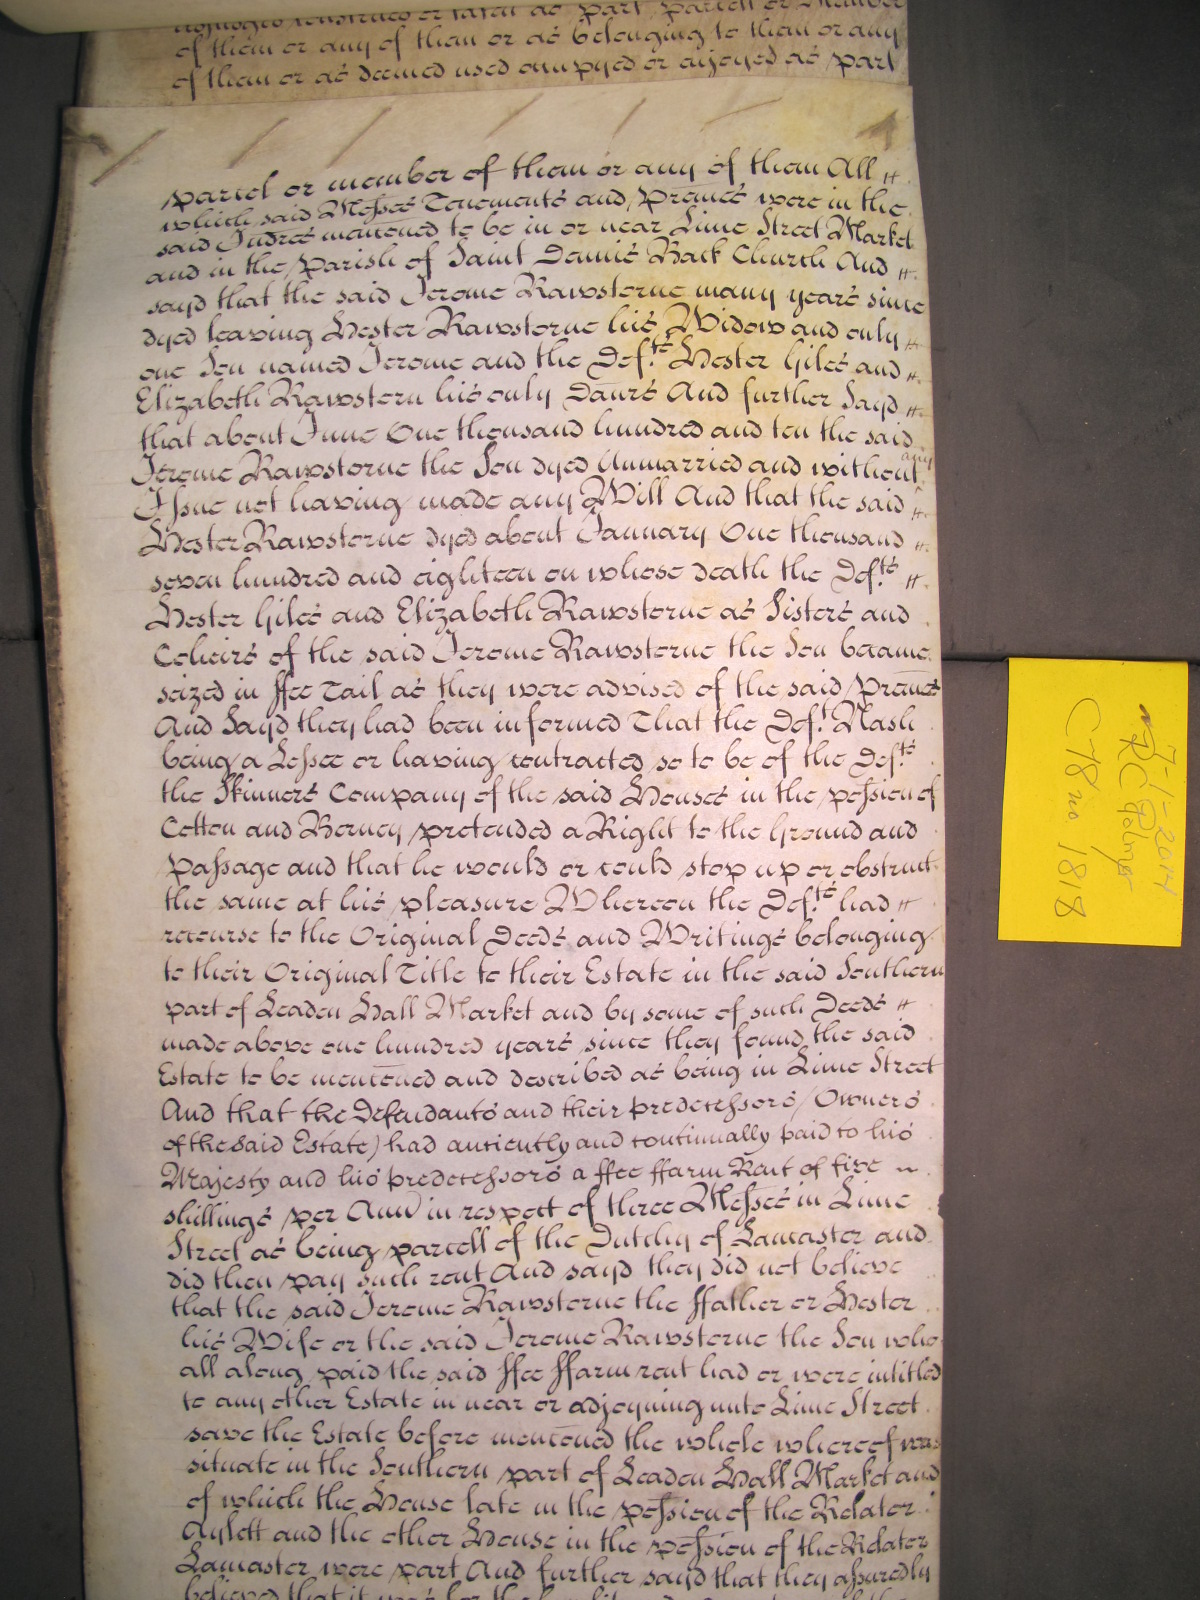 of them or any of them or as belonging to them or any
of them or as deemed used occupyed or enjoyed as part
parcel or member of them or any of them All
which said Messes Tenements and Premes were in the
said Indres menconed to be in or near Lime Street Market
and in the Parish of Saint Dennis Back Church And
sayd that the said Jerome Rawstorne many years since
dyed leaving Hester Rawstorne his Widow and only
one Son named Jerome and the Def.ts Hester Giles and
Elizabeth Rawstorn his only Daurs And further Sayd
that about June One thousand hundred and ten the said
Jerome Rawstorne the Son dyed Unmarried and without any
Issue not having made any Will And that the said
Hester Rawstorne dyed about January One thousand
seven hundred and eighteen on whose death the Def.ts
Hester Giles and Elizabeth Rawstorne as Sisters and
Coheirs of the said Jerome Rawstorne the Son became
seized in ffee Tail as they were advised of the said Premes
And Sayd they had been informed That the Def.t Nash
being a Lessee or having contracted so to be of the Def.ts
the Skinners Company of the said Houses in the possion of
Cotton and Berney pretended a Right to the Ground and
Passage and that he would or could stop up or obstruct
the same at his pleasure Whereon the Def.ts had
recourse to the Original Deeds and Writings belonging
to their Original Title to their Estate in the said Southern
part of Leaden Hall Market and by some of such Deeds
made above one hundred years since they found the said
Estate to be menconed and described as being in Lime Street
And that the Defendants and their predecessors (Owners
of the said Estate) had antiently and continually paid to his
Majesty and his predecessors a ffee ffarm Rent of five
shillings per Ann in respect of three Messes in Lime
Street as being parcell of the Dutchy of Lancaster and
did then pay such rent And sayd they did not believe
that the said Jerome Rawstorne the ffather or Hester
his Wife or the said Jerome Rawstorne the Son who
all along paid the said ffee ffarm rent had or were intitled
to any other Estate in near or adjoyning unto Lime Street
save the Estate before menconed the whole whereof was
situate in the Southern part of Leaden Hall Market and
of which the House late in the possion of the Relator
Aylett and the other House in the possion of the Relator
Lancaster were part And further sayd that they assuredly
7-1-2014
C 78 no 1818